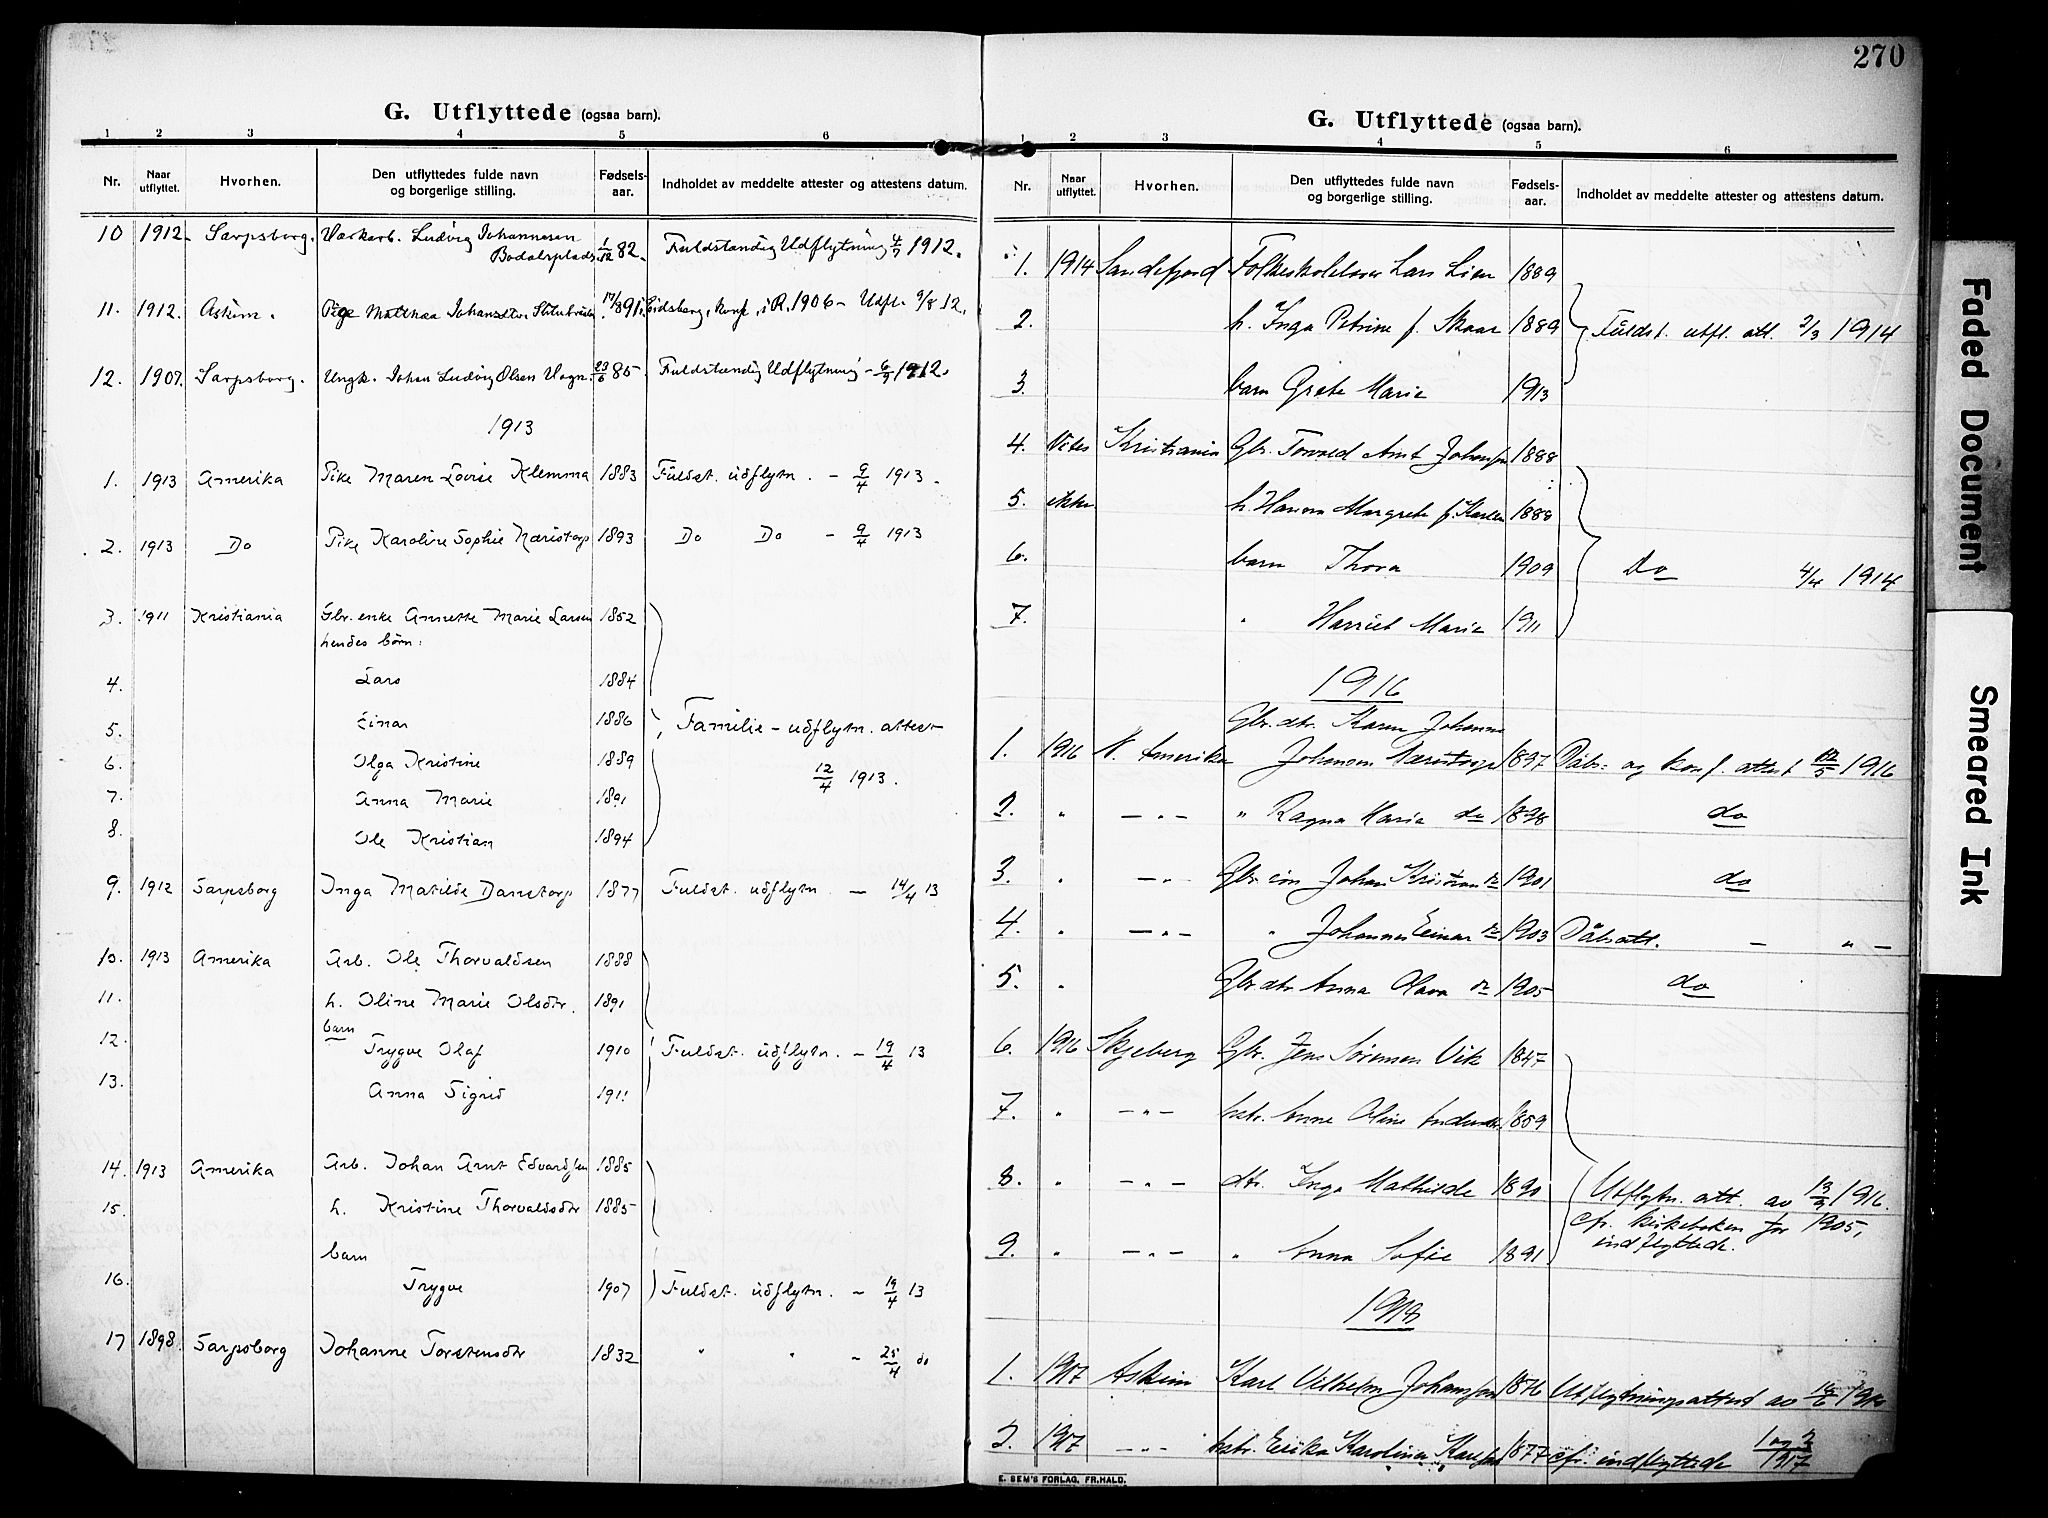 270
G. Utflyttede (ogsaa barn).
1 2 3 4 5 6
Nr. Naar utflyttet. Hvorhen. Den utflyttedes fulde navn og borgerlige stilling. Fødsels-aar. Indholdet av meddelte attester og attestens datum.
10 1912 Sarpsborg. Værkarb. Ludvig Johannesen 1/12 82. Fuldstændig Udflytning 4/7 1912.
Bodalsplads
11. 1912. Askim. Pige Matthea Johansdtr. 17/8 91 Eidsberg, konf. i R. 1906 - Udfl. 9/8 12.
12. 1907. Sarpsborg. Ungk. Johan Ludvig Olsen Vogn. 23/6 85. Fuldstændig Udflytning - 6/9 1912.
1913
1. 1913 Amerika Pike Maren Lovise Klemma 1883 Fuldst. udflytn. - 9/4 1913.
2. 1913 Do Pike Karoline Sophie Næristorp 1893 Do Do - 9/4 1913
3. 1911 Kristiania Gbr. enke Annette Marie Larsen 1852
hendes børn:
4. Lars 1884
5. Einar 1886 Familie - udflytn. attest
6. Olga Kristine 1889
7. Anna Marie 1891 12/4 1913.
8. Ole Kristian 1894
9. 1912 Sarpsborg Inga Matilde Danstorp 1877 Fuldst. udflytn. - 14/4 13
10. 1913 Amerika Arb. Ole Thorvaldsen 1888
11. h. Oline Marie Olsdtr. 1891
barn
12. Trygve Olaf 1910 Fuldst. udflytn. - 19/4 13
13. Anna Sigrid 1911
14. 1913 Amerika Arb. Johan Arnt Edvardsen 1885
15. h. Kristine Thorvaldsdtr 1885
barn
16. Trygve 1907 Fuldst. udflytn. - 19/4 13
17 1898. Sarpsborg Johanne Torstensdtr 1832 " " - 25/4 do
G. Utflyttede (ogsaa barn).
1 2 3 4 5 6
Nr. Naar utflyttet. Hvorhen. Den utflyttedes fulde navn og borgerlige stilling. Fødsels-aar. Indholdet av meddelte attester og attestens datum.
1. 1914 Sandefjord Folkeskolelærer Lars Lien 1889
2. h. Inga Petrine f. Skaar 1889 Fuldst. utfl. att. 2/3 1914
3. barn Grete Marie 1913
4. Vites Kristiania Gbr. Torvald Arnt Johansen 1888
5. ikke h. Hanna Margrete f. Karlsen 1888
6. barn Thora 1909 Do 4/4 1914
7. " Harriet Marie 1911
1916
Gbr. dtr. Karen Johanne
1. 1916 N. Amerika Johansen Næristorp 1897 Dåbs- og konf. attest 12/5 1916
2. " - " - " Ragna Maria do 1898 do
3. " - " - Gbr. søn Johan Kristian do 1901 do
4. " - " - " Johannes Einar do 1903 Dåbsatt. - " -
5. " Gbr. dtr Anna Olava do 1905 do
6. 1916 Skjeberg Gbr. Jens Sørensen Vik 1847
7. " - " - hstr. Anne Oline Andersdtr. 1859
8. " - " - dtr. Inga Mathilde 1890 Utflytn. att. av 13/9 1916.
cfr. kirkeboken for 1905,
9. " - " - " Anna Sofie 1891 indflyttede.
1918
1. 1917 Askim Karl Vilhelm Johansson 1876 Utflytningsattest av 18/6 1918
2. 1917 - " - hstr. Erika Karolina Karlsson 1877 cfr. indflyttede 1 og 2 1917
E. SEM'S FORLAG, FR.HALD.
Faded Document
Smeared Ink